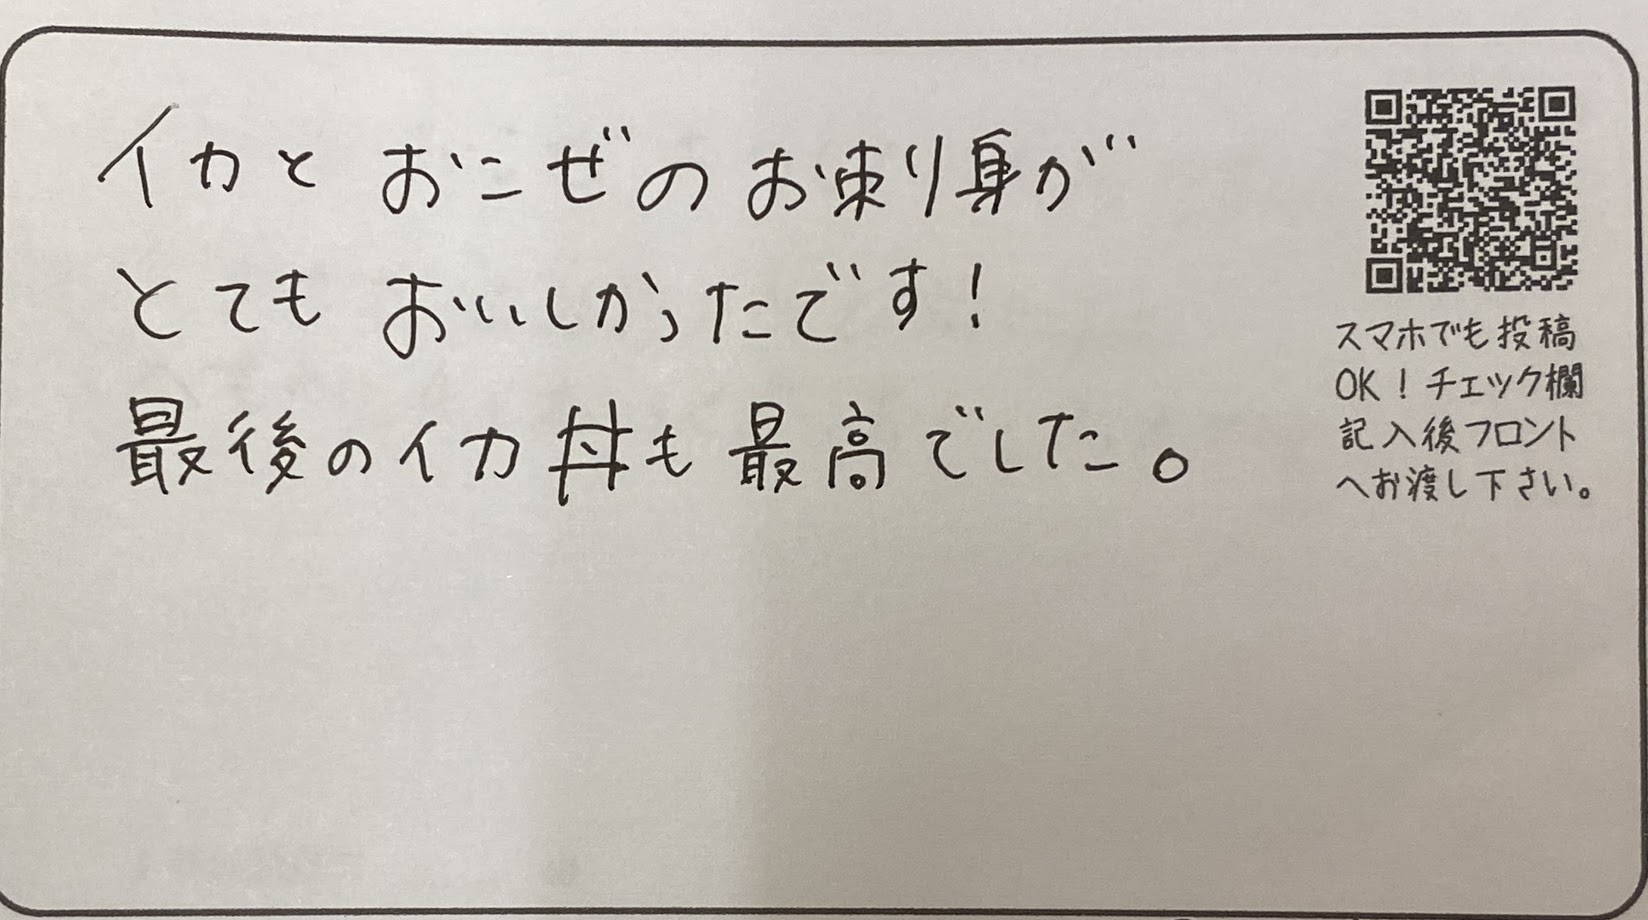 イカとおこぜのお刺り身が
とてもおいしかったです！
最後のイカ丼も最高でした。
スマホでも投稿
OK！チェック欄
記入後フロント
へお渡し下さい。